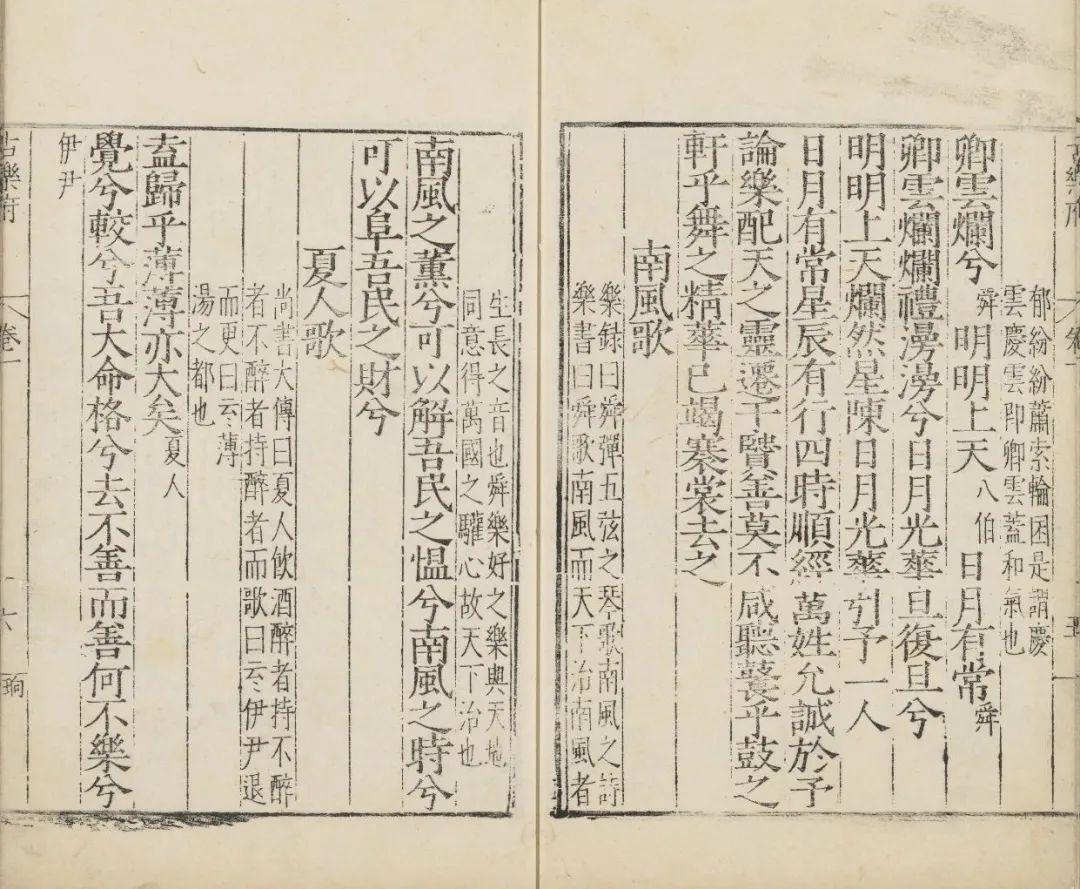 古樂府
卷一
五
郁紛紛蕭索輪囷是謂慶
雲慶雲即卿雲蓋和氣也
卿雲爛兮舜明明上天八伯日月有常舜
卿雲爛爛禮漫漫兮日月光華旦復旦兮
明明上天爛然星陳日月光華引予一人
日月有常星辰有行四時順經萬姓允誠於予
論樂配天之靈遷于賢善莫不咸聽鼚乎鼓之
軒乎舞之精華已竭褰裳去之
南風歌
樂錄曰舜彈五弦之琴歌南風之詩
樂書曰舜歌南風而天下治南風者
生長之音也舜樂好之樂與天地
同意得萬國之驩心故天下治也
南風之薰兮可以解吾民之慍兮南風之時兮
可以阜吾民之財兮
夏人歌
尚書大傳曰夏人飲酒醉者持不醉
者不醉者持醉者而歌曰云云伊尹退
而更曰云云薄
湯之都也
盍歸乎薄薄亦大矣夏人
覺兮較兮吾大命格兮去不善而善何不樂兮
伊尹
古樂府
卷一
六